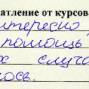 атление от курсов
нтересно
помощь
х случа
лось